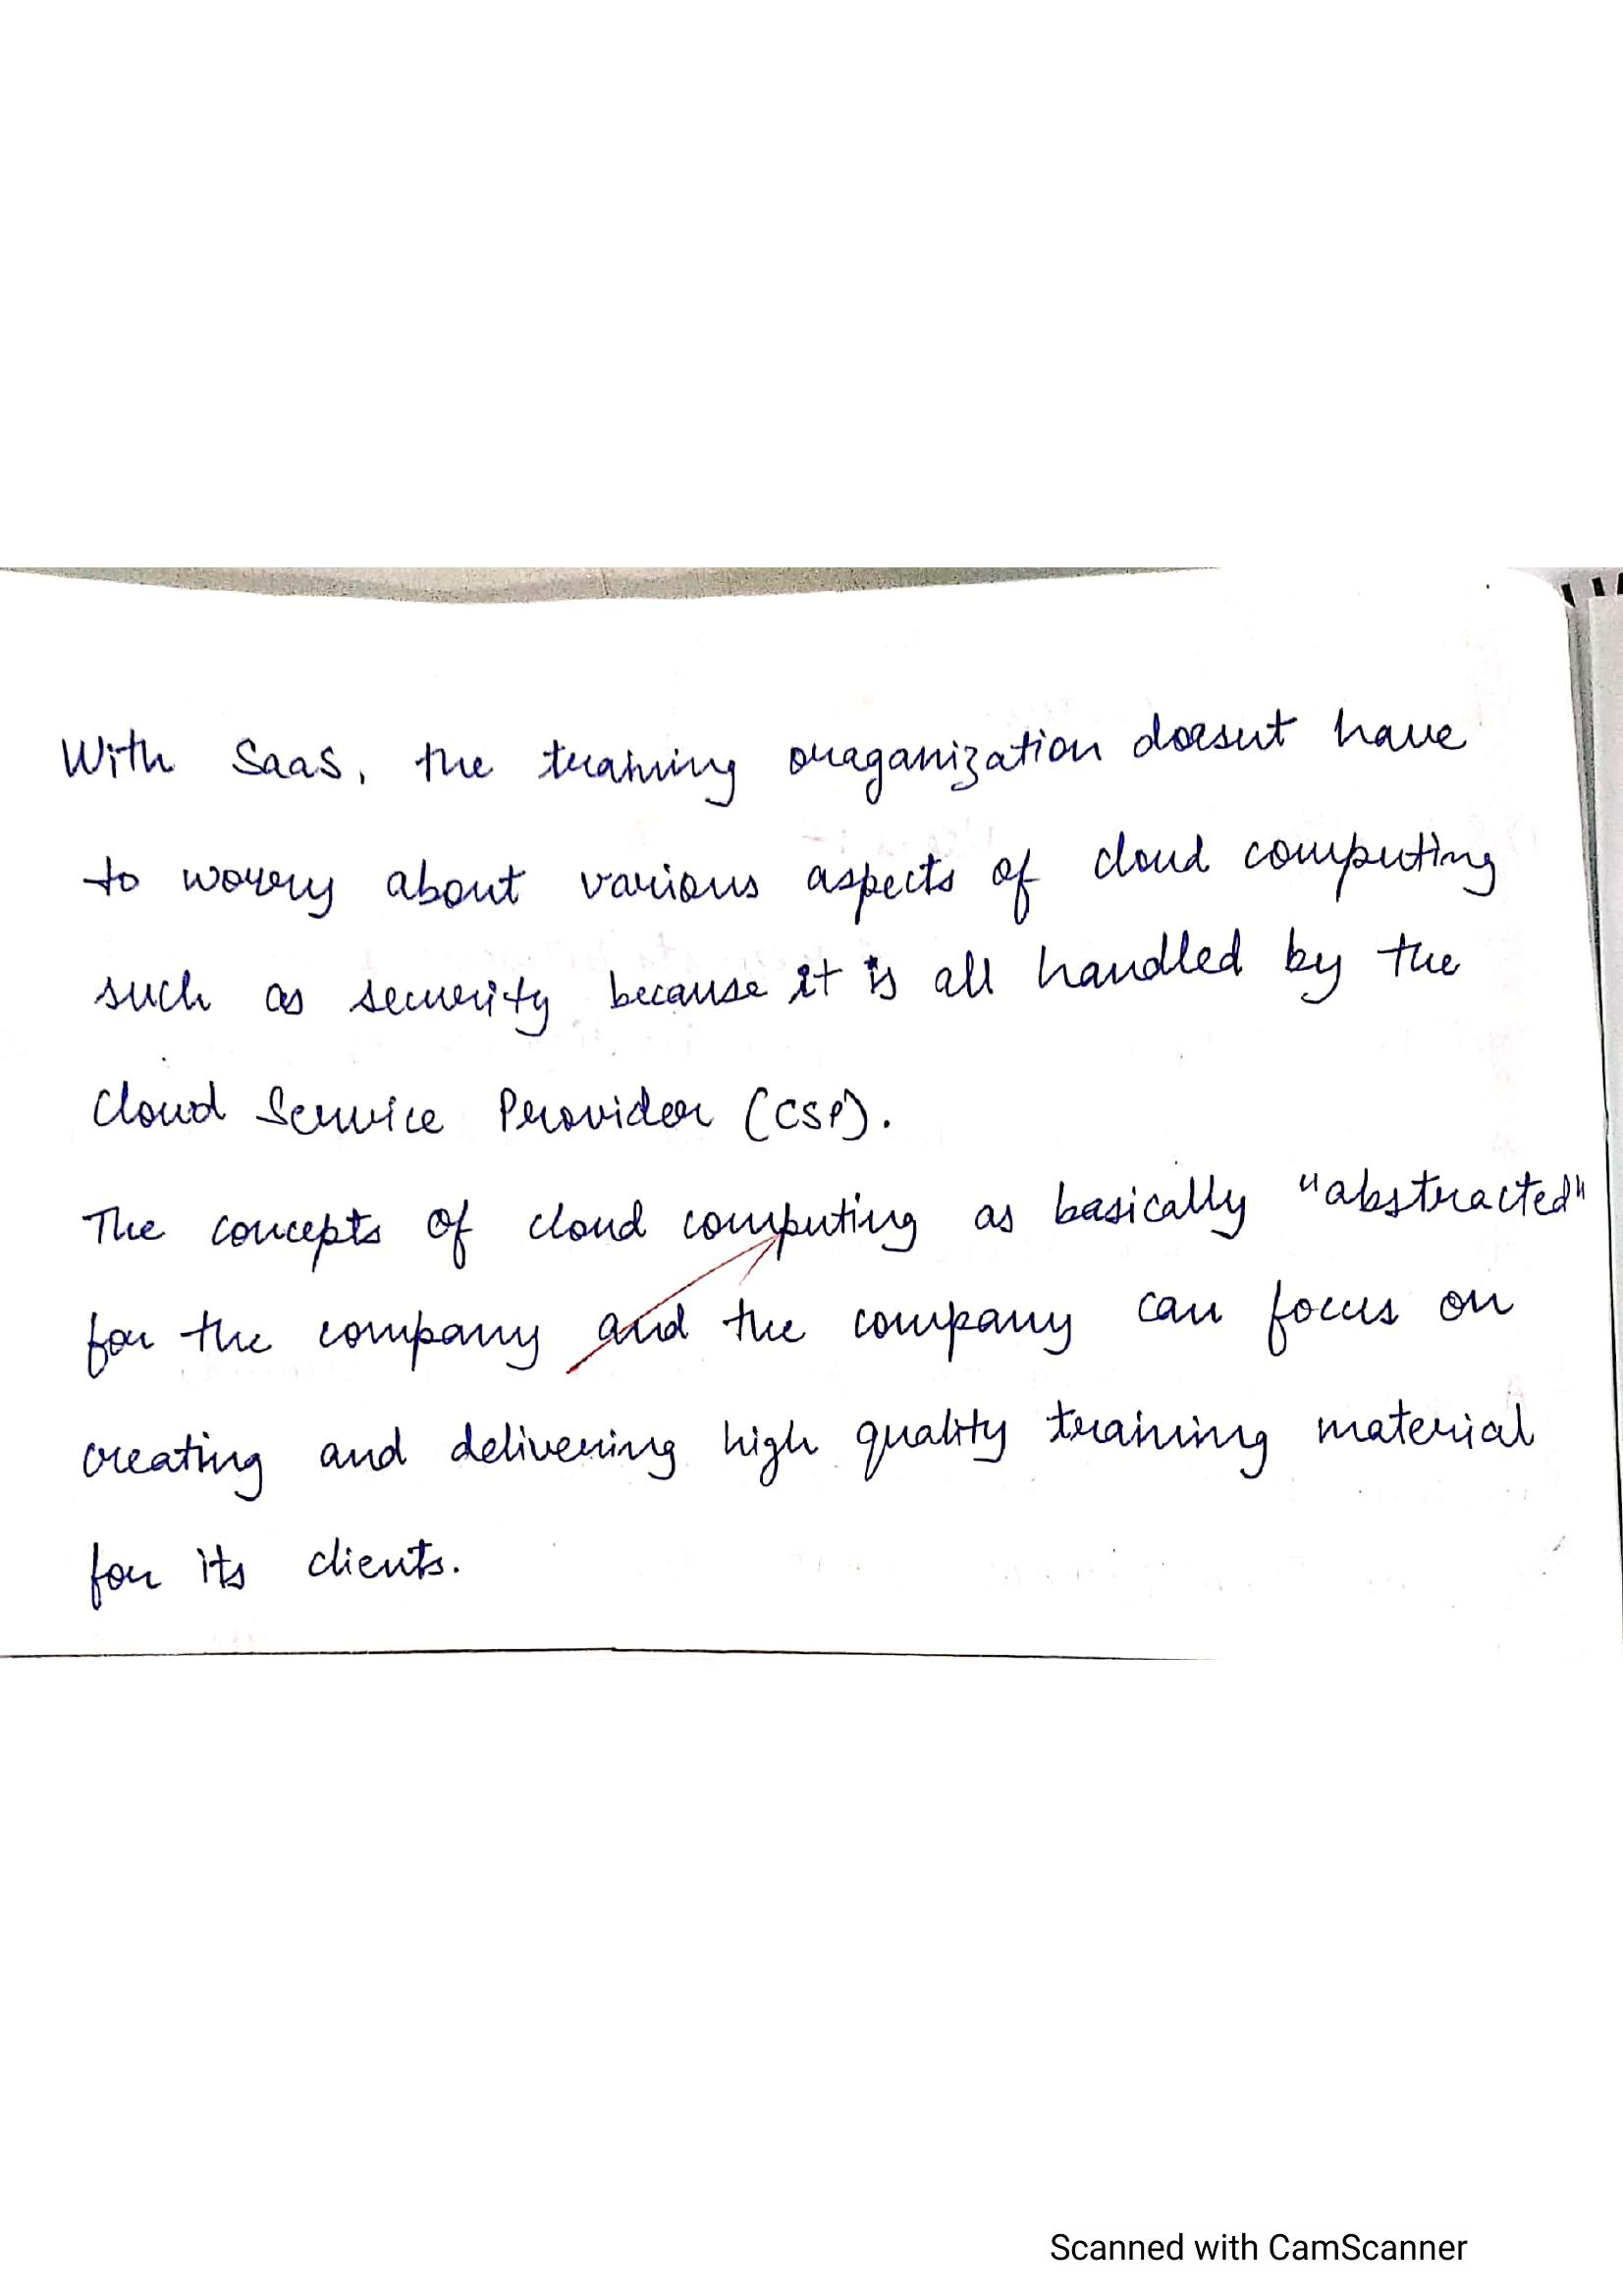 With SaaS, the training oraganization doesnt have
to worry about various aspects of cloud computing
such as security because it is all handled by the
Cloud Service Provider (CSP).
The concepts of cloud computing as basically "abstracted"
for the company and the company can focus on
creating and delivering high quality training material
for its clients.
Scanned with CamScanner